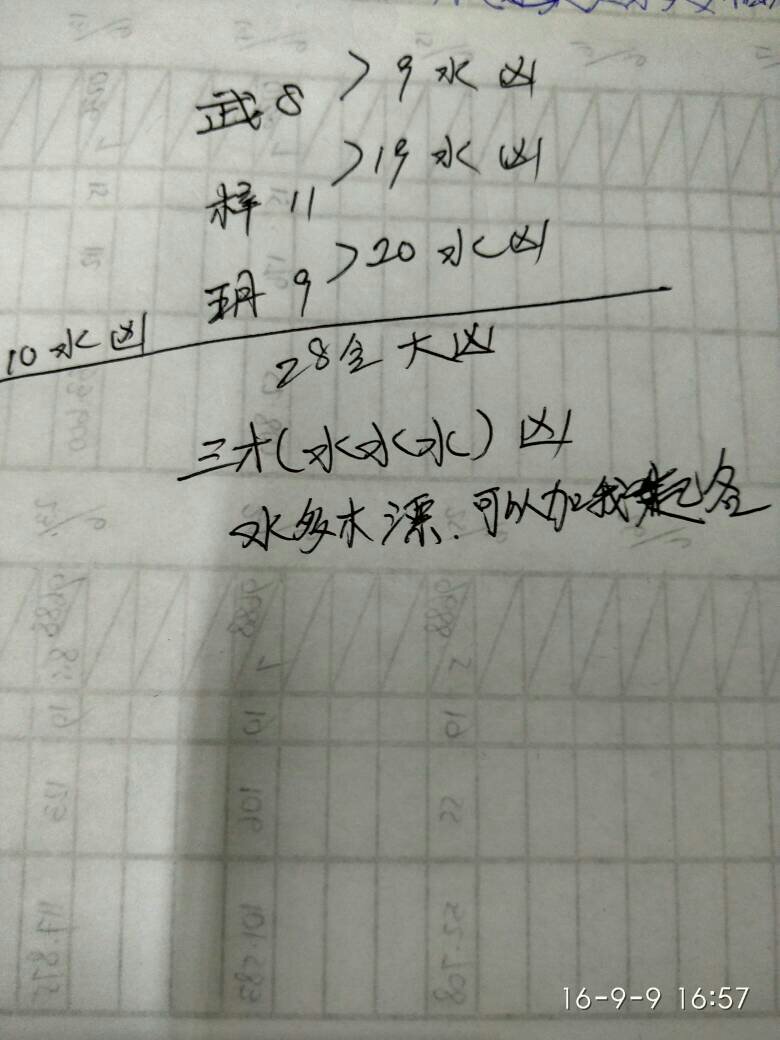 >9 水 凶
武 8
>19 水 凶
梓 11
>20 水 凶
玥 9
10 水 凶
28 金 大 凶
三才(水水水) 凶
水多木漂.可以加我 起名
16-9-9 16:57